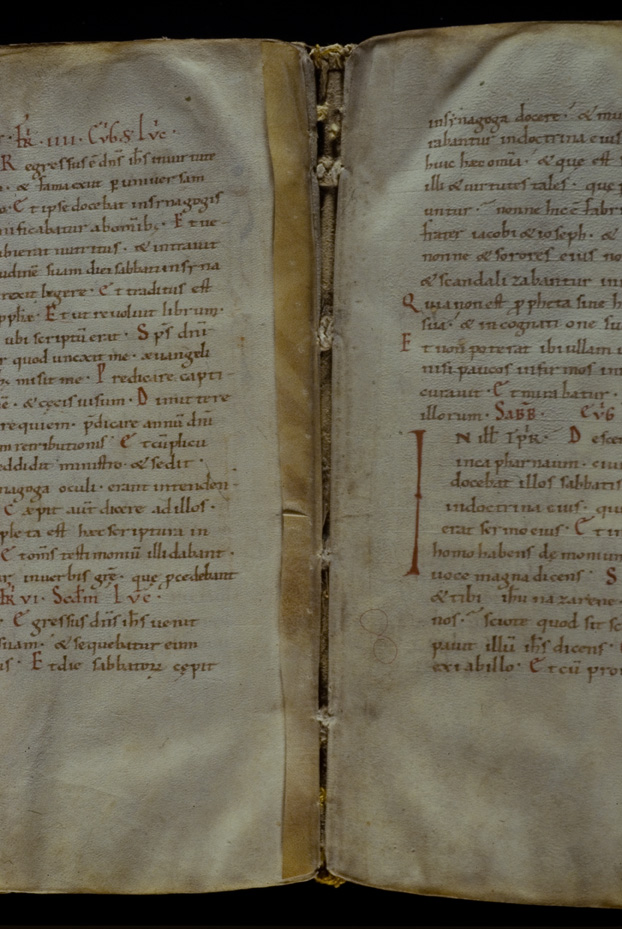 · F̅R · IIII · Cvb & Lvc ·
R egressus ē dn̄s ih̄s inuirtute
& fama exiit p uniuersam
· E t ipse docebat insynagogis
nificabatur abomnib; · E tue
nutritus · & intrauit
udinē suam die sabbati insyna
rexit legere · E t traditus est
· E t ut reuoluit librum ·
ubi scriptū erat · S p̄s dn̄i
r quod uncxit me · æuangeli
misit me · P redicare capti
& cęcis uisum · D imittere
requiem · p̄dicare annū dn̄i
m retributionis · E t cū plicu
eddidit ministro · & sedit ·
nagoga oculi · erant intenden
C æpit aut̄ dicere ad illos ·
pleta est hæc scriptura in
E t om̄s testimoniū illi dabant ·
inuerbis grę · que p̄cedebant
F̅R VI · Scdm̄ Lvc ·
E gressus dn̄s ih̄s uenit
suam · & sequebatur eum
E t die sabbatorū cępit
insynagoga docere · & mu
rabantur indoctrina eius
huic hæc omīa · & que est
illi & uirtutes tales · que p
untur · nonne hic ē fabri
frater iacobi & ioseph · &
nonne & sorores eius no
& scandalizabantur in
Q uia non est p̄pheta sine h
sua · & in cognatione su
E t non poterat ibi ullam u
nisi paucos infirmos im
curauit · E t mirabatur ·
illorum · Sabb̄ · Cvb
I N ill̄ Tp̄R · D escen
inca pharnaum · ciui
docebat illos sabbatis
indoctrina eius · qui
erat sermo eius · E t in
homo habens dęmonium
uoce magna dicens · S
& tibi ih̄u nazarene ·
nos · scio te quod sit sc
pauit illū ih̄s dicens ·
exi ab illo · E t cū proi